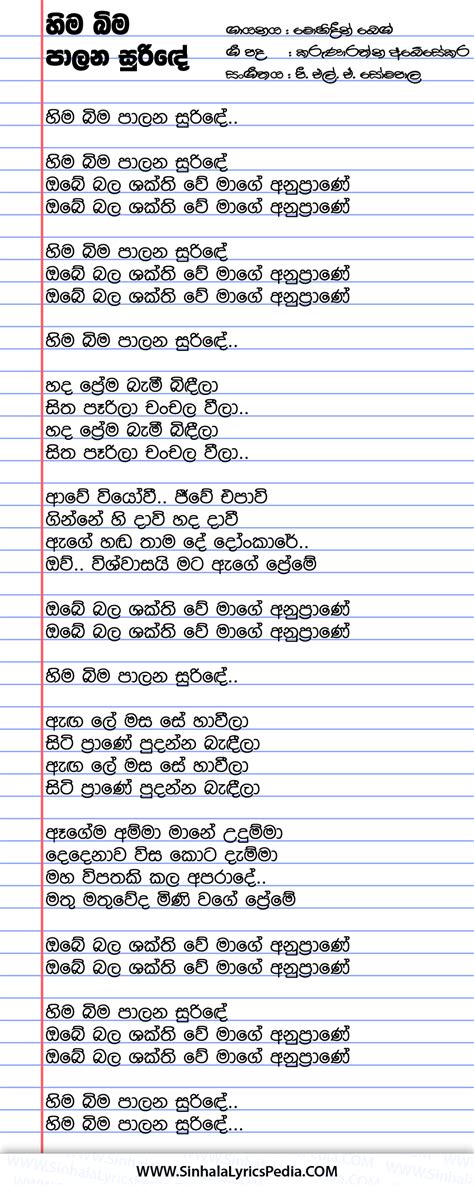 හිම බිම
පාලන සුරිඳේ
ගායනය : මොහිදීන් බෙග්
ගී පද : කරුණාරත්න අබේසේකර
සංගීතය : පී. එල්. ඒ. සෝමපාල
හිම බිම පාලන සුරිඳේ..
හිම බිම පාලන සුරිඳේ
ඔබේ බල ශක්ති වේ මාගේ අනුප්‍රාණේ
ඔබේ බල ශක්ති වේ මාගේ අනුප්‍රාණේ
හිම බිම පාලන සුරිඳේ
ඔබේ බල ශක්ති වේ මාගේ අනුප්‍රාණේ
ඔබේ බල ශක්ති වේ මාගේ අනුප්‍රාණේ
හිම බිම පාලන සුරිඳේ..
හද ප්‍රේම බැමී බිඳීලා
සිත පෑරිලා චංචල වීලා..
හද ප්‍රේම බැමී බිඳීලා
සිත පෑරිලා චංචල වීලා..
ආවේ වියෝවී.. ජීවේ එපාවී
ගින්නේ හි දාවි හද දාවී
ඇගේ හඬ තාම දේ දෝංකාරේ..
ඔව්.. විශ්වාසයි මට ඇගේ ප්‍රේමේ
ඔබේ බල ශක්ති වේ මාගේ අනුප්‍රාණේ
ඔබේ බල ශක්ති වේ මාගේ අනුප්‍රාණේ
හිම බිම පාලන සුරිඳේ..
ඇඟ ලේ මස සේ හාවීලා
සිටි ප්‍රාණේ පුදන්න බැඳීලා
ඇඟ ලේ මස සේ හාවීලා
සිටි ප්‍රාණේ පුදන්න බැඳීලා
ඈගේම අම්මා මානේ උදුම්මා
දෙදෙනාව විස කොට දැම්මා
මහ විපතකි කල අපරාදේ..
මතු මතුවේද මිණි වගේ ප්‍රේමේ
ඔබේ බල ශක්ති වේ මාගේ අනුප්‍රාණේ
ඔබේ බල ශක්ති වේ මාගේ අනුප්‍රාණේ
හිම බිම පාලන සුරිඳේ
ඔබේ බල ශක්ති වේ මාගේ අනුප්‍රාණේ
ඔබේ බල ශක්ති වේ මාගේ අනුප්‍රාණේ
හිම බිම පාලන සුරිඳේ..
හිම බිම පාලන සුරිඳේ...
www.SinhalaLyricsPedia.COM